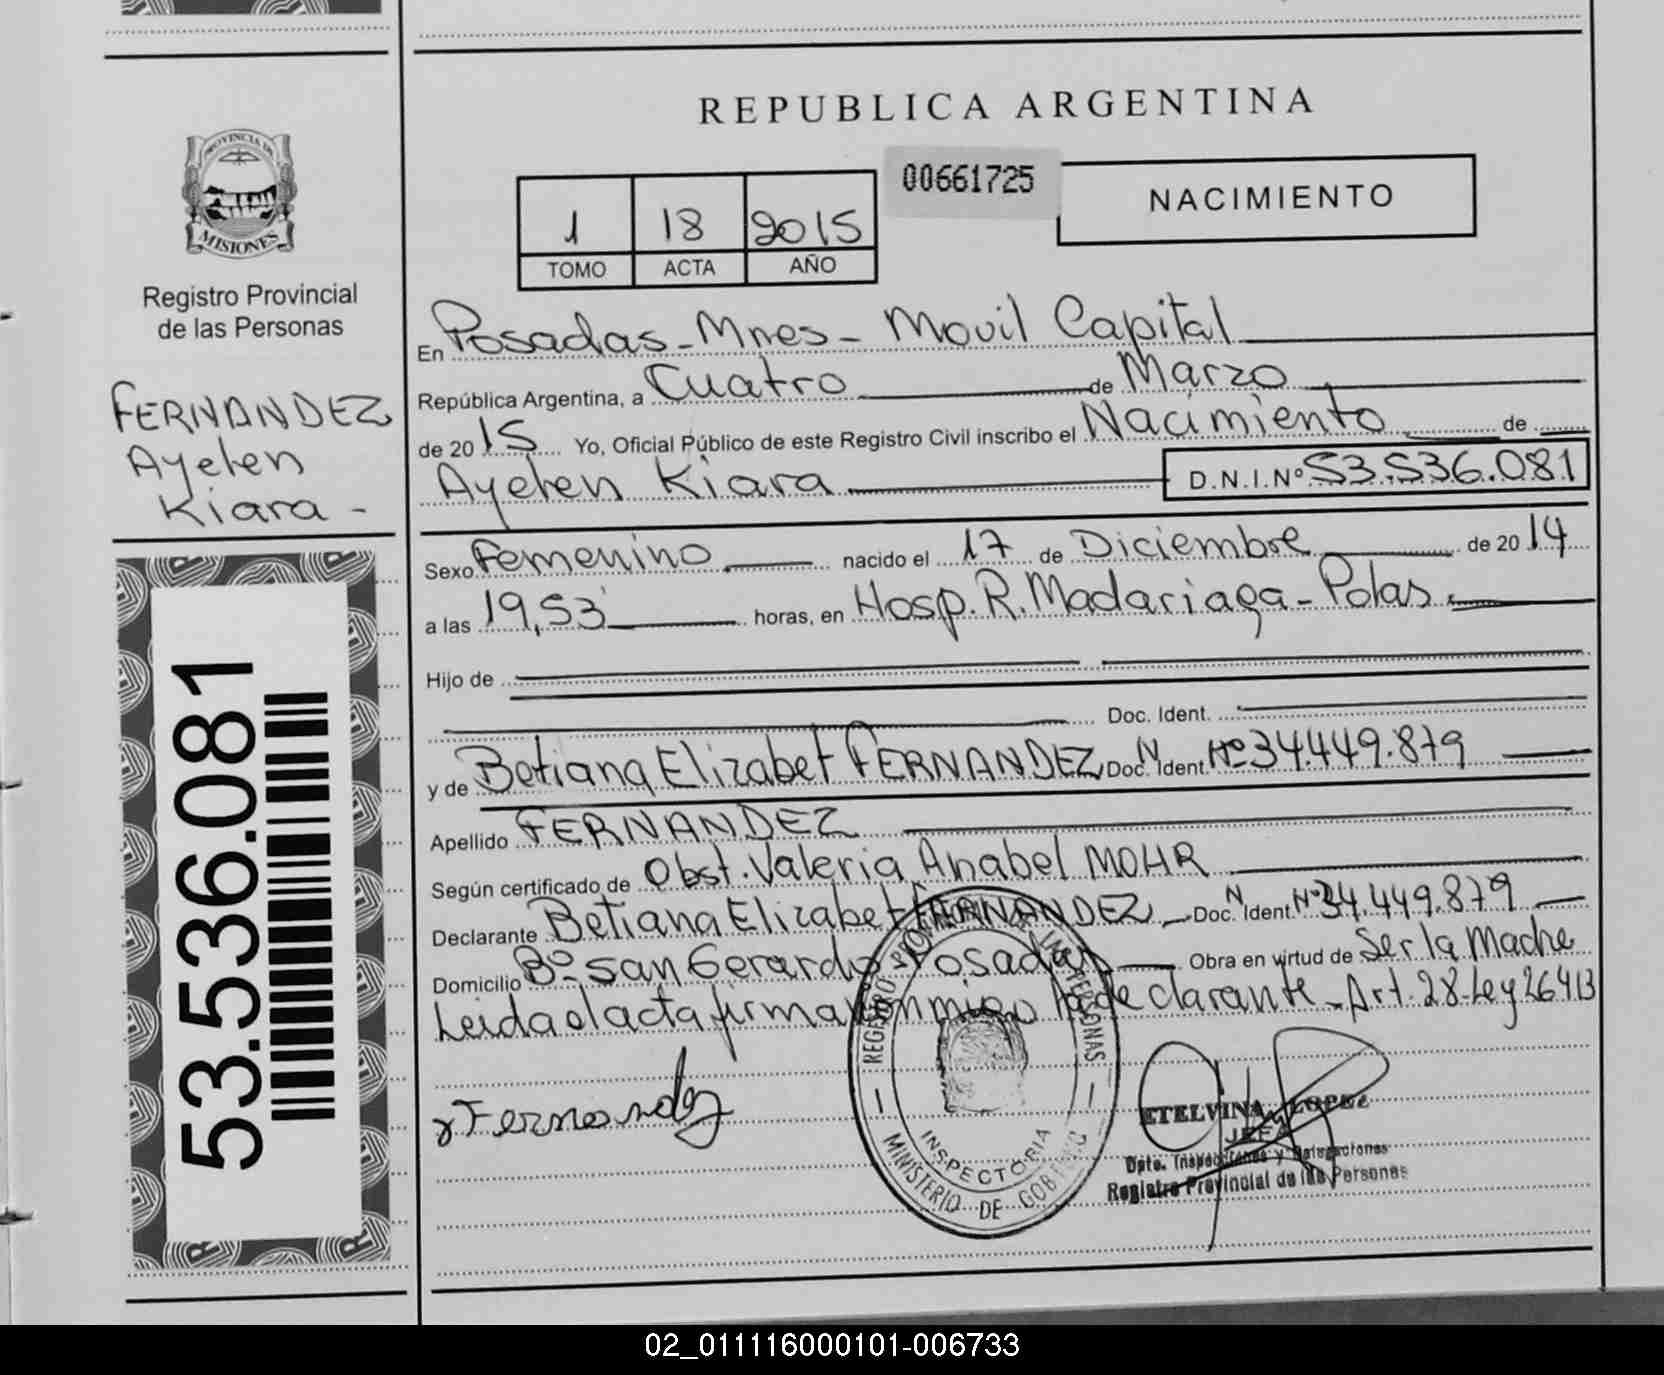 REPUBLICA ARGENTINA
PROVINCIA DE
MISIONES
Registro Provincial
de las Personas
FERNANDEZ
Ayelen
Kiara -
53.536.081
1 18 2015
TOMO ACTA AÑO
00661725
NACIMIENTO
En Posadas - Mnes - Movil Capital
República Argentina, a Cuatro de Marzo
de 2015 Yo, Oficial Público de este Registro Civil inscribo el Nacimiento de
Ayelen Kiara D.N.I.Nº 53.536.081
Sexo Femenino nacido el 17 de Diciembre de 2014
a las 19,53 horas, en Hosp. R. Madariaga - Pdas.
Hijo de
Doc. Ident.
y de Betiana Elizabet FERNANDEZ Doc. N Ident. Nº 34.449.879
Apellido FERNANDEZ
Según certificado de Obst. Valeria Anabel MOHR
Declarante Betiana Elizabet FERNANDEZ Doc. N Ident. Nº 34.449.879
Domicilio Bº San Gerardo Posadas Obra en virtud de Ser la Madre
Leida el acta firma conmigo la declarante - Art. 28 - Ley 26413
Fernandez
REGISTRO PROVINCIAL DE LAS PERSONAS
INSPECTORIA
MINISTERIO DE GOBIERNO
ETELVINA LOPEZ
JEFA
Dpto. Inspecciones y Delegaciones
Registro Provincial de las Personas
02_011116000101-006733